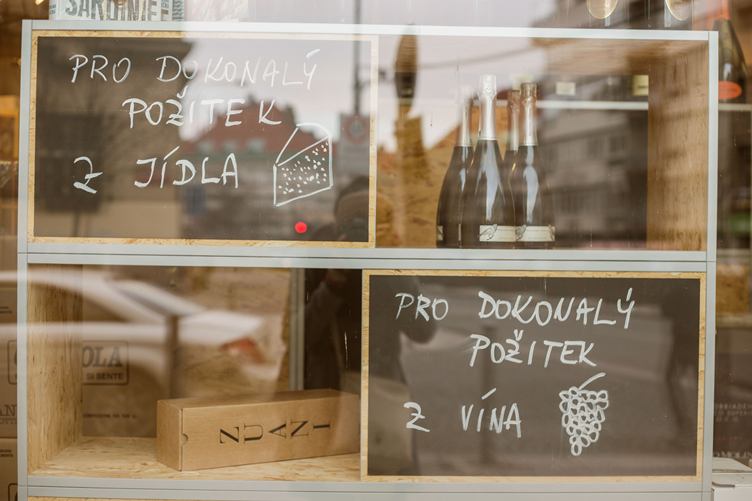 SARDINE
PRO DOKONALÝ
POŽITEK
Z JÍDLA
PRO DOKONALÝ
POŽITEK
Z VÍNA
OLA
DI SENTE
ZUANI